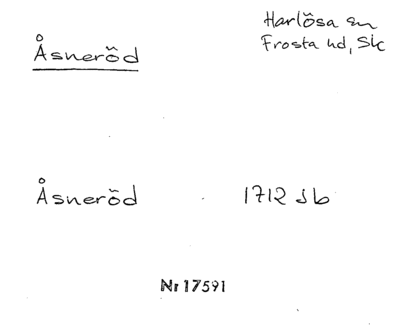 Harlösa sn
Åsneröd
Frosta hd, Sk
Åsneröd 1712 Jb
Nr 17591